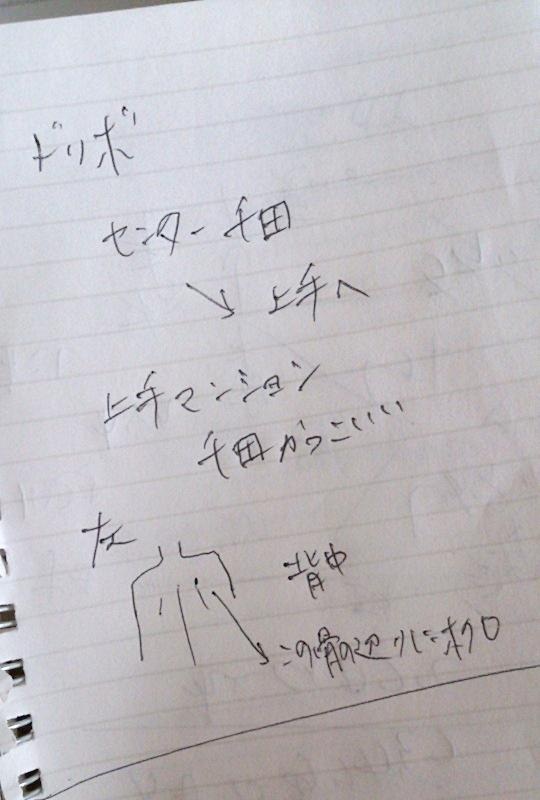 ドリボ
センター 千田
↘ 上手へ
上手マンション
千田かっこいいい
左
背中
この骨の辺りにホクロ